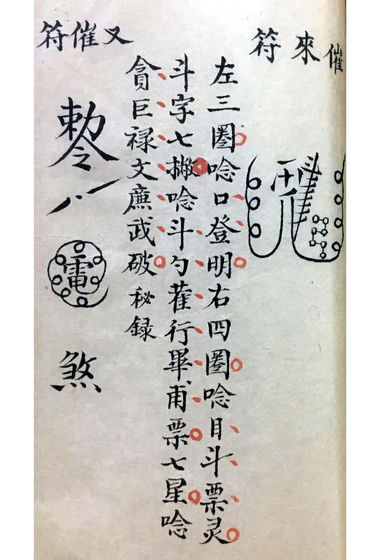 催來符
左三圈唸口登明右四圈唸目斗票灵
斗字七撇唸斗勺雚行畢甫票七星唸
貪巨禄文廉武破秘録
又催符
勅令
雷
煞